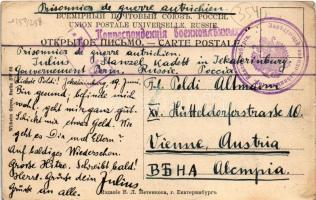 Prisonniers de guerre autrichien.
ВСЕМІРНЫЙ ПОЧТОВЫЙ СОЮЗЪ. РОССІЯ.
UNION POSTALE UNIVERSELLE. RUSSIE.
Корреспонденція военноплѣнныхъ
ОТКРЫТОЕ ПИСЬМО. — CARTE POSTALE
Prisonniers de guerre autrichien
Julius Stanzel, Kadett in Jekaterinburg.
Gouvernement Perm. Russie. Россія
Liebste Poldi! Jekaterinburg, Juni.
Bin gesund, befinde mich
wohl, geht mir ganz gut.
Schickt mir etwas Geld. Wie
geht es Dir und Eltern?
Auf baldiges Wiedersehen.
Große Hitze. Schreibt bald!
Herzl. Grüße dein Julius
Grüße an alle.
Poldi
XV. Hütteldorferstrasse
Vienne, Austria
ВѢНА Австрія
Изданіе В. Л. Метенкова, г. Екатеринбургъ.